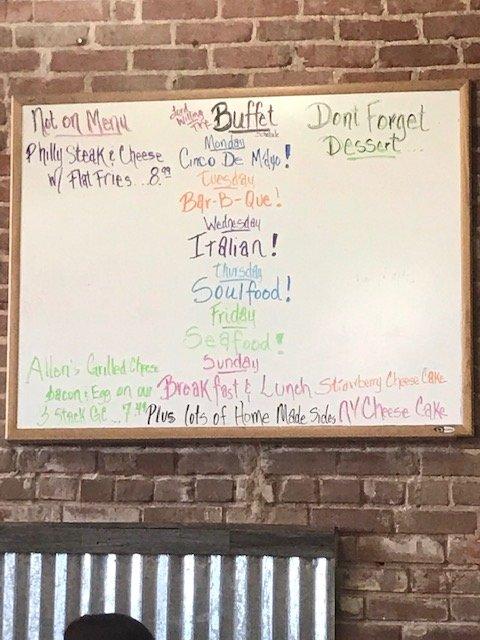 Not on Menu
Philly Steak & Cheese
w/ Flat Fries...8.99
Allen's Grilled Cheese
bacon & Egg on our
3 stack GC...7.99
Buffet
Schedule
Monday
Cinco De Mayo!
Tuesday
Bar-B-Que!
Wednesday
Italian!
Thursday
Soulfood!
Friday
Seafood!
Sunday
Breakfast & Lunch
Plus lots of Home Made Sides
Dont Forget
Dessert...
Strawberry Cheese Cake
NY Cheese Cake